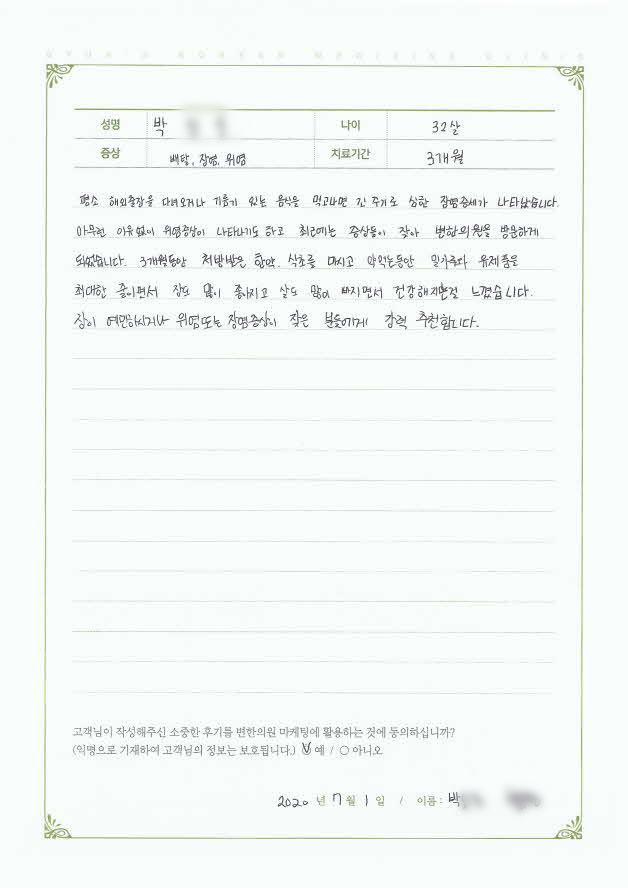 BYUN'S KOREAN MEDICINE CLINIC
성명 박 나이 32살
증상 배탈, 장염, 위염 치료기간 3개월
평소 해외출장을 다녀오거나 기름기 있는 음식을 먹고나면 긴 주기로 심한 장염증세가 나타났습니다.
아무런 이유없이 위염증상이 나타나기도 하고 최근에는 증상들이 잦아 변한의원을 방문하게
되었습니다. 3개월동안 처방받은 환약, 식초를 마시고 약먹는동안 밀가루와 유제품을
최대한 줄이면서 장도 많이 좋아지고 살도 많이 빠지면서 건강해지는걸 느꼈습니다.
장이 예민하시거나 위염또는 장염증상이 잦은 분들에게 강력 추천합니다.
고객님이 작성해주신 소중한 후기를 변한의원 마케팅에 활용하는 것에 동의하십니까?
(익명으로 기재하여 고객님의 정보는 보호됩니다.) V 예 / ○ 아니오
2020 년 7 월 1 일 / 이름 : 박